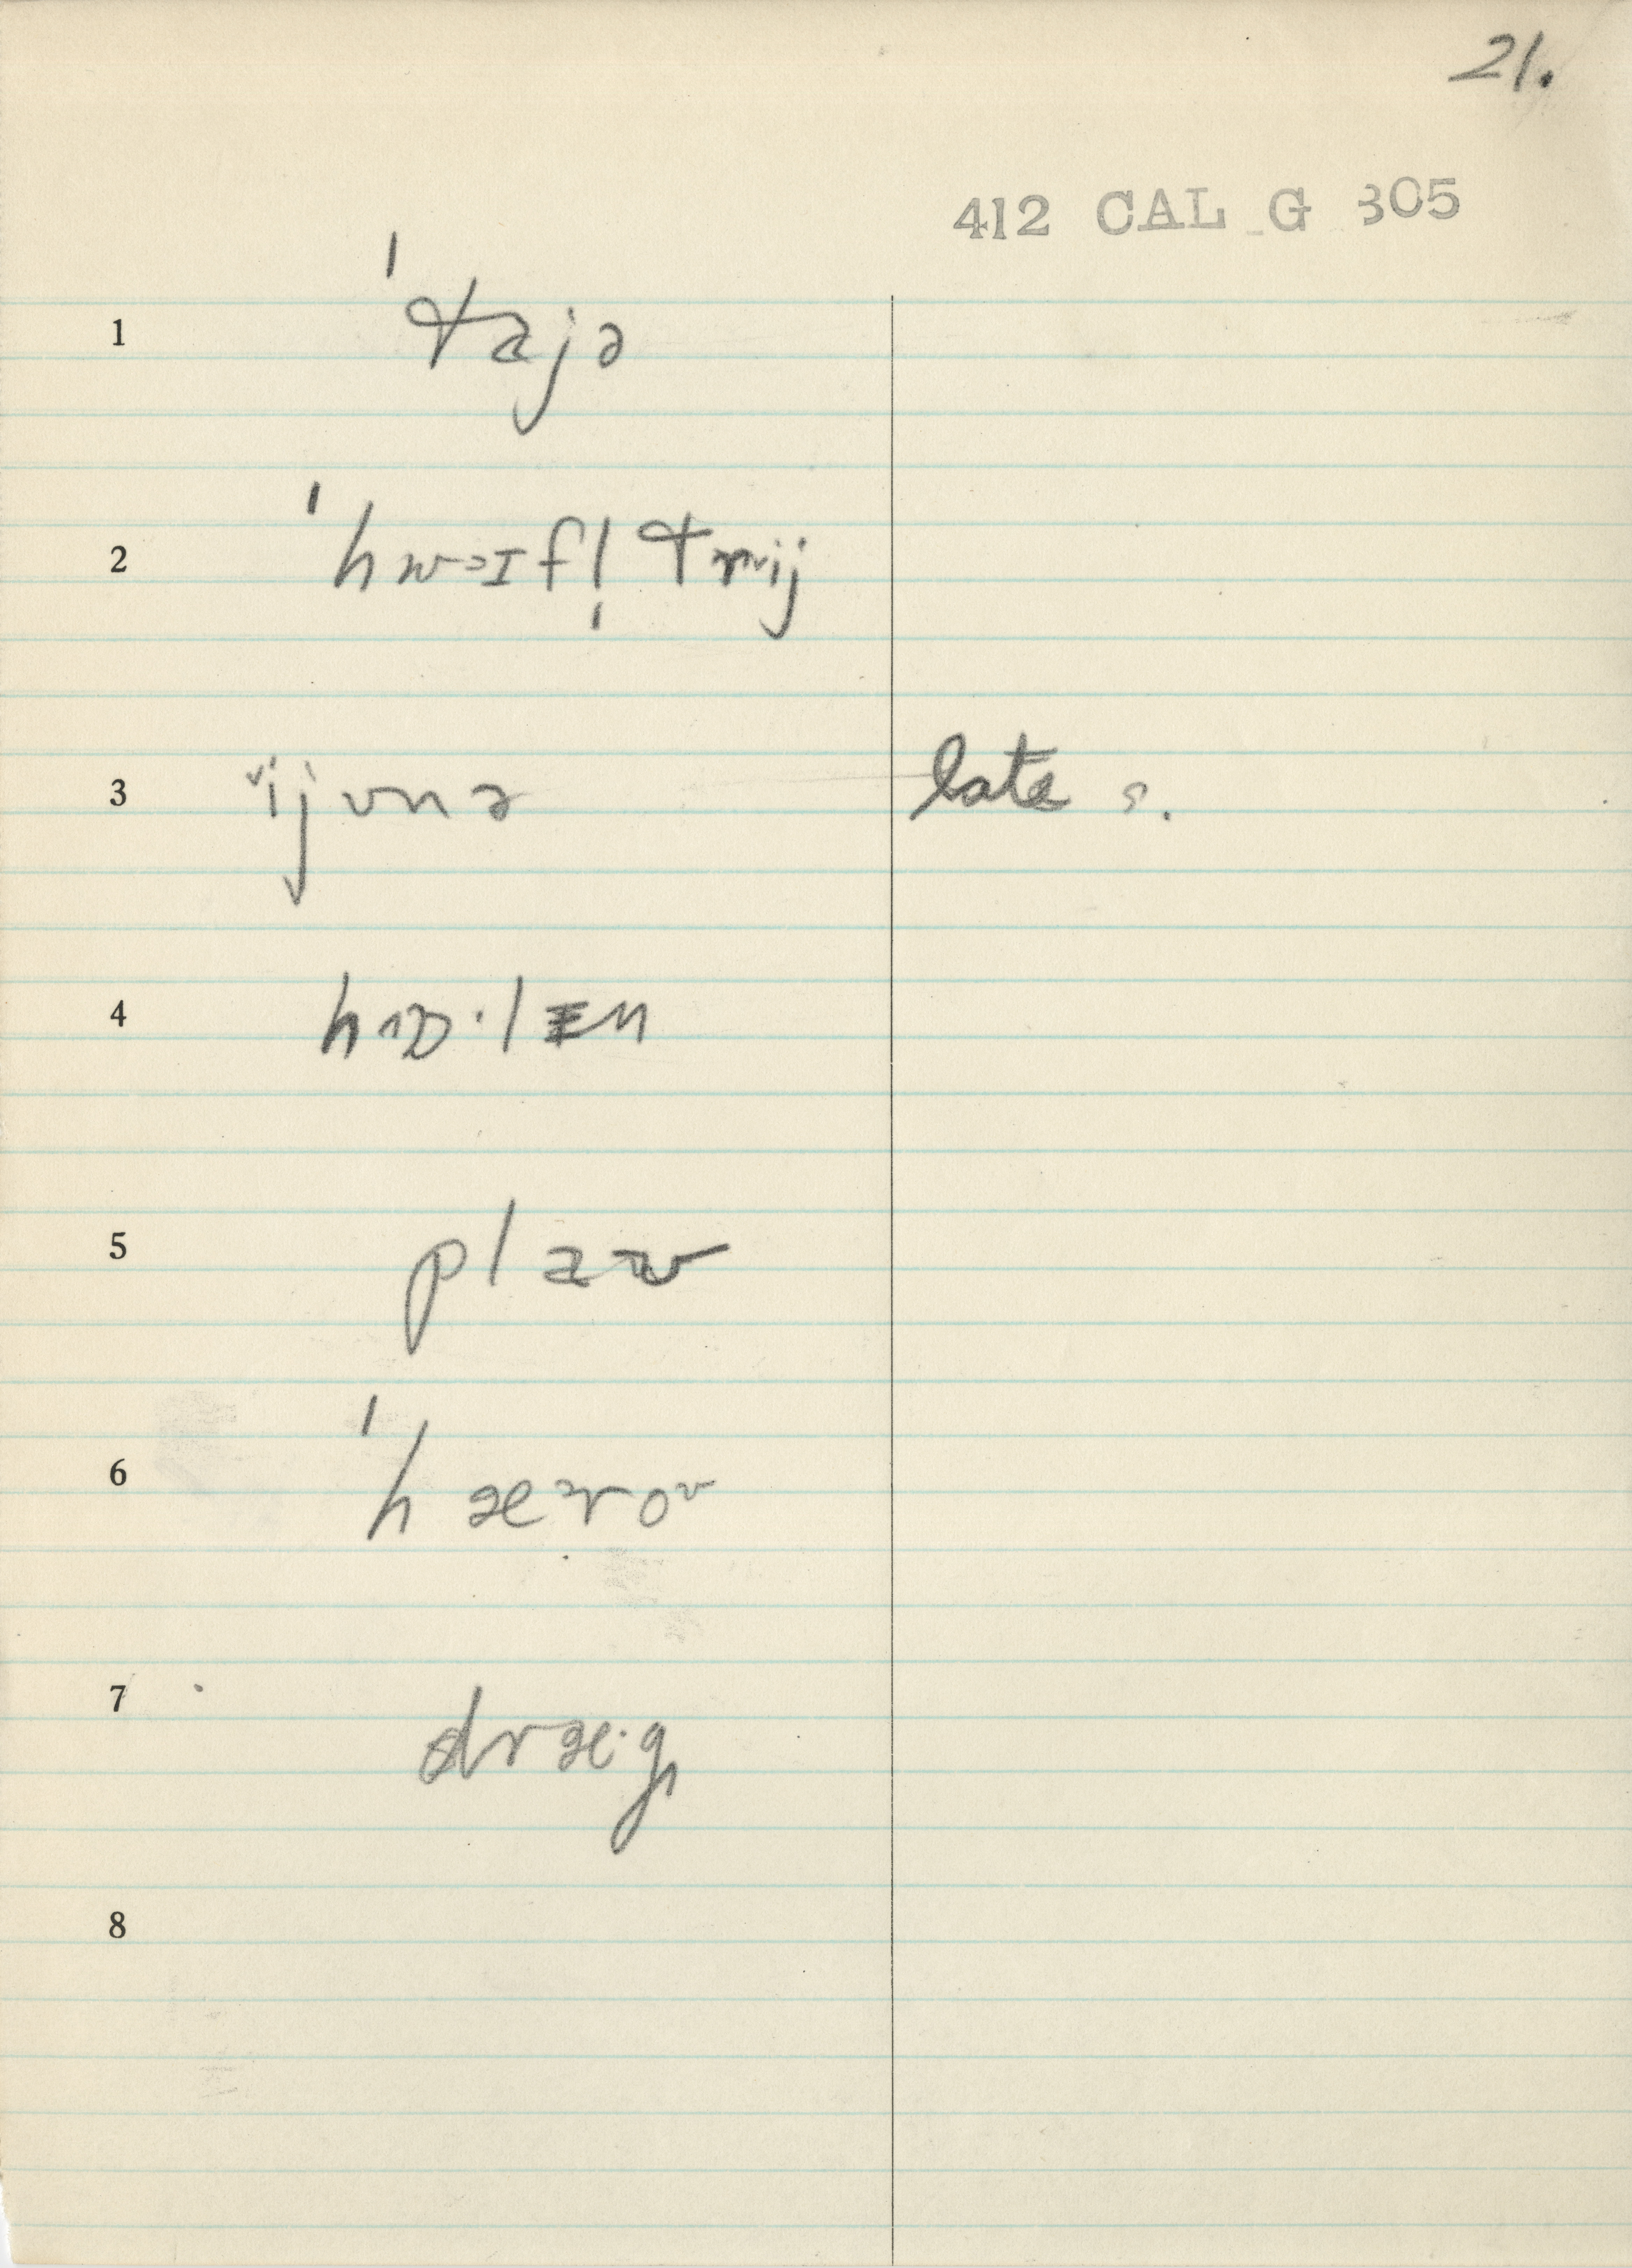 21.
412 CAL G 305
1 ˈtajə
2 ˈhwɔɪfl̩trij
3 ijvnə late s.
4 hɒ·lɛn
5 plaʊ
6 ˈhæroʊ
7 dræ·g
8